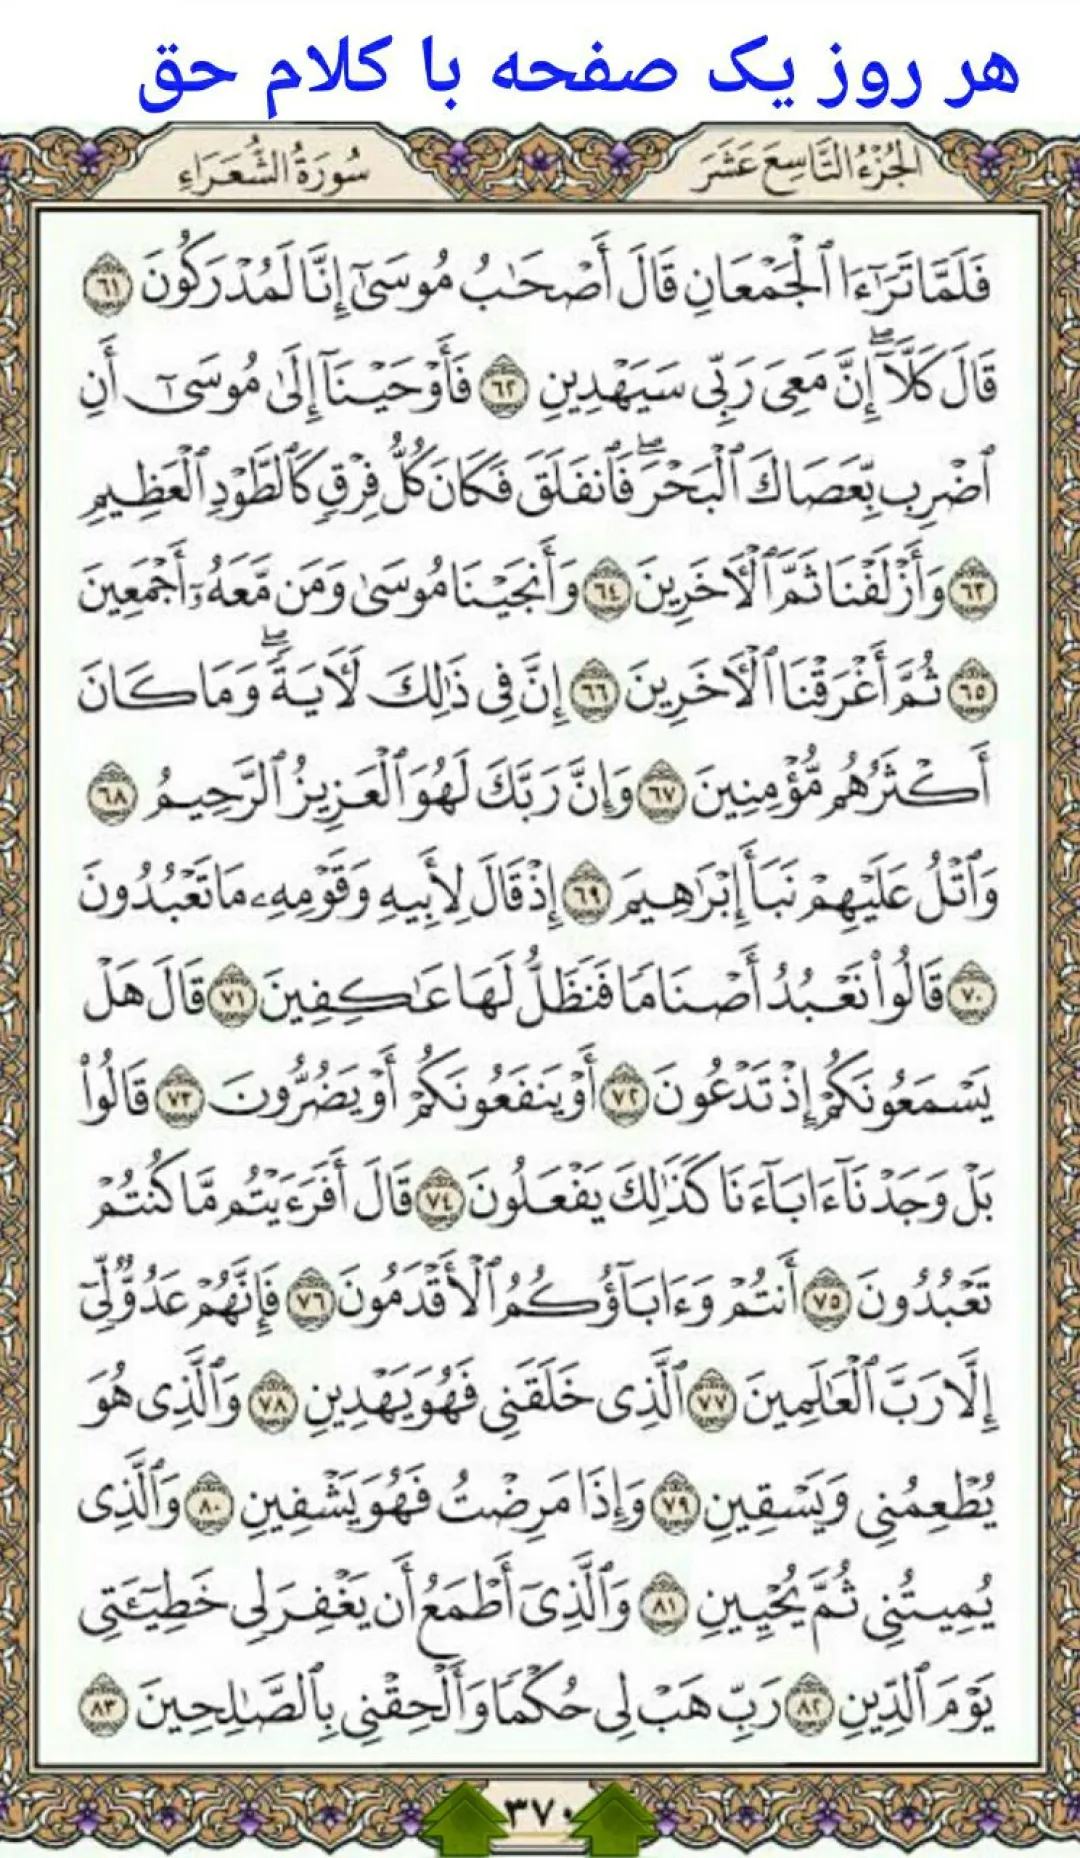 هر روز یک صفحه با کلام حق
الجُزْءُ التَّاسِعَ عَشَرَ
سُورَةُ الشُّعَرَاءِ
فَلَمَّا تَرَٰٓءَا ٱلْجَمْعَانِ قَالَ أَصْحَٰبُ مُوسَىٰٓ إِنَّا لَمُدْرَكُونَ ٦١
قَالَ كَلَّآ ۖ إِنَّ مَعِىَ رَبِّى سَيَهْدِينِ ٦٢ فَأَوْحَيْنَآ إِلَىٰ مُوسَىٰٓ أَنِ
ٱضْرِب بِّعَصَاكَ ٱلْبَحْرَ ۖ فَٱنفَلَقَ فَكَانَ كُلُّ فِرْقٍ كَٱلطَّوْدِ ٱلْعَظِيمِ
٦٣ وَأَزْلَفْنَا ثَمَّ ٱلْـَٔاخَرِينَ ٦٤ وَأَنجَيْنَا مُوسَىٰ وَمَن مَّعَهُۥٓ أَجْمَعِينَ
٦٥ ثُمَّ أَغْرَقْنَا ٱلْـَٔاخَرِينَ ٦٦ إِنَّ فِى ذَٰلِكَ لَـَٔايَةً ۖ وَمَا كَانَ
أَكْثَرُهُم مُّؤْمِنِينَ ٦٧ وَإِنَّ رَبَّكَ لَهُوَ ٱلْعَزِيزُ ٱلرَّحِيمُ ٦٨
وَٱتْلُ عَلَيْهِمْ نَبَأَ إِبْرَٰهِيمَ ٦٩ إِذْ قَالَ لِأَبِيهِ وَقَوْمِهِۦ مَا تَعْبُدُونَ
٧٠ قَالُوا۟ نَعْبُدُ أَصْنَامًا فَنَظَلُّ لَهَا عَٰكِفِينَ ٧١ قَالَ هَلْ
يَسْمَعُونَكُمْ إِذْ تَدْعُونَ ٧٢ أَوْ يَنفَعُونَكُمْ أَوْ يَضُرُّونَ ٧٣ قَالُوا۟
بَلْ وَجَدْنَآ ءَابَآءَنَا كَذَٰلِكَ يَفْعَلُونَ ٧٤ قَالَ أَفَرَءَيْتُم مَّا كُنتُمْ
تَعْبُدُونَ ٧٥ أَنتُمْ وَءَابَآؤُكُمُ ٱلْأَقْدَمُونَ ٧٦ فَإِنَّهُمْ عَدُوٌّ لِّىٓ
إِلَّا رَبَّ ٱلْعَٰلَمِينَ ٧٧ ٱلَّذِى خَلَقَنِى فَهُوَ يَهْدِينِ ٧٨ وَٱلَّذِى هُوَ
يُطْعِمُنِى وَيَسْقِينِ ٧٩ وَإِذَا مَرِضْتُ فَهُوَ يَشْفِينِ ٨٠ وَٱلَّذِى
يُمِيتُنِى ثُمَّ يُحْيِينِ ٨١ وَٱلَّذِىٓ أَطْمَعُ أَن يَغْفِرَ لِى خَطِيٓـَٔتِى
يَوْمَ ٱلدِّينِ ٨٢ رَبِّ هَبْ لِى حُكْمًا وَأَلْحِقْنِى بِٱلصَّٰلِحِينَ ٨٣
٣٧٠